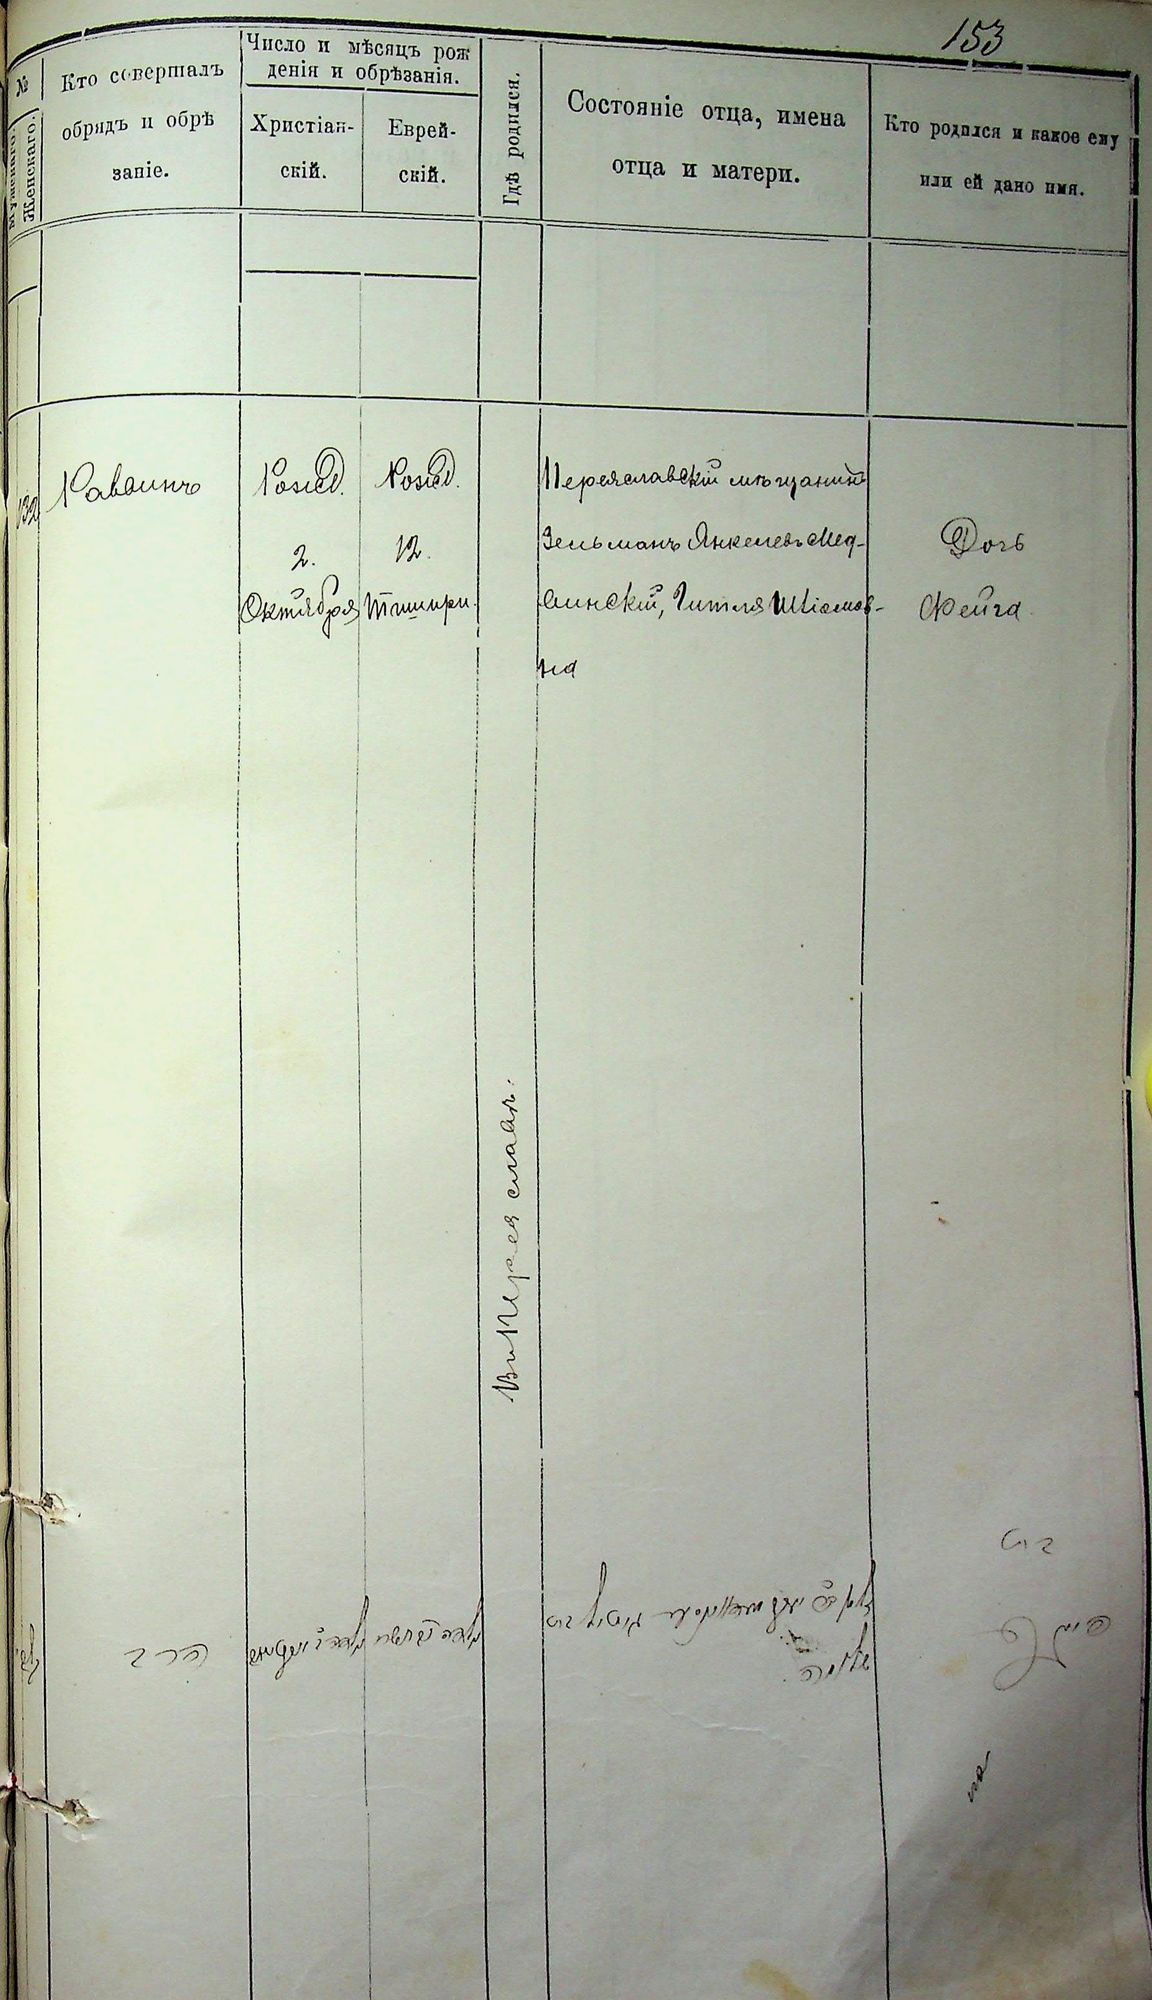 153
№
Мужескаго.
Женскаго.
Кто совершалъ
обрядъ и обрѣ
заніе.
Число и мѣсяцъ рож
денія и обрѣзанія.
Христіан-
скій.
Еврей-
скій.
Гдѣ родился.
Состояніе отца, имена
отца и матери.
Кто родился и какое ему
или ей дано имя.
132
Раввинъ
Рожд.
2.
Октября
Рожд.
12.
Тишри.
Въ Переяславѣ.
Переяславскій мѣщанинъ
Зельманъ Янкелевъ Мед-
винскій, Гитля Шіомов-
на
Дочь
Фейга